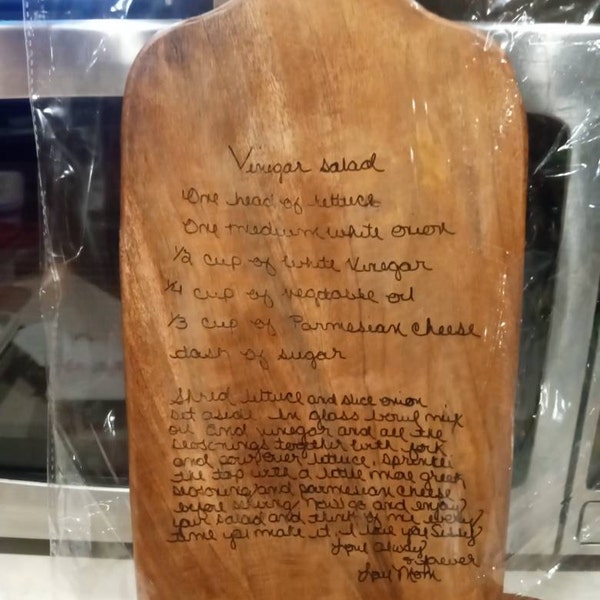 Vinegar salad
One head of lettuce
One medium white onion
1/2 cup of white Vinegar
1/4 cup of vegetable oil
1/3 cup of Parmesian cheese
dash of sugar
Shred lettuce and slice onion
set aside. In glass bowl mix
oil and vinegar and all the
seasonings together with fork
and pour over lettuce, sprinkle
the top with a little more greek
seasoning and parmesian cheese
before serving. Now go and enjoy
your salad and think of me every
time you make it, I love you Sissy
Love always
& forever
Mom